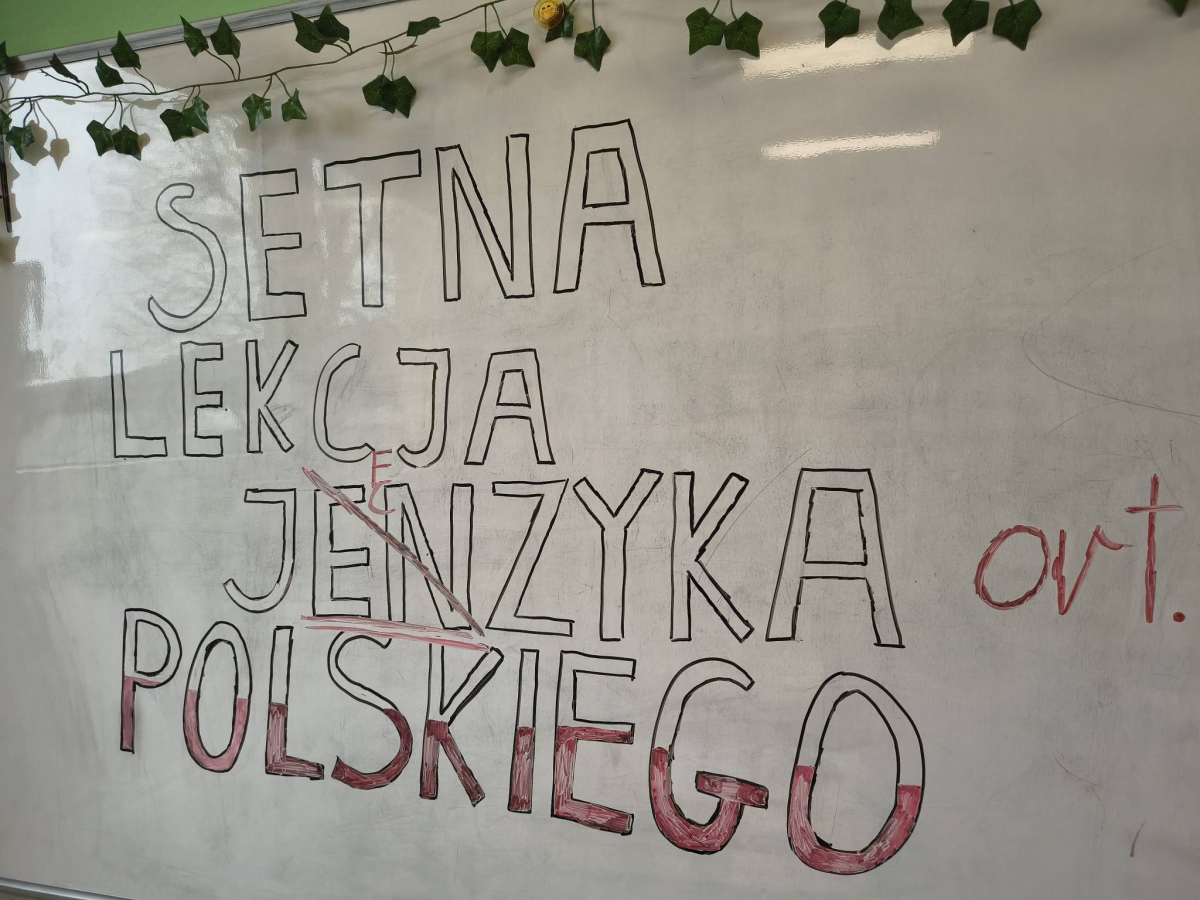 SETNA
LEKCJA
Ę
JENZYKA ort.
POLSKIEGO